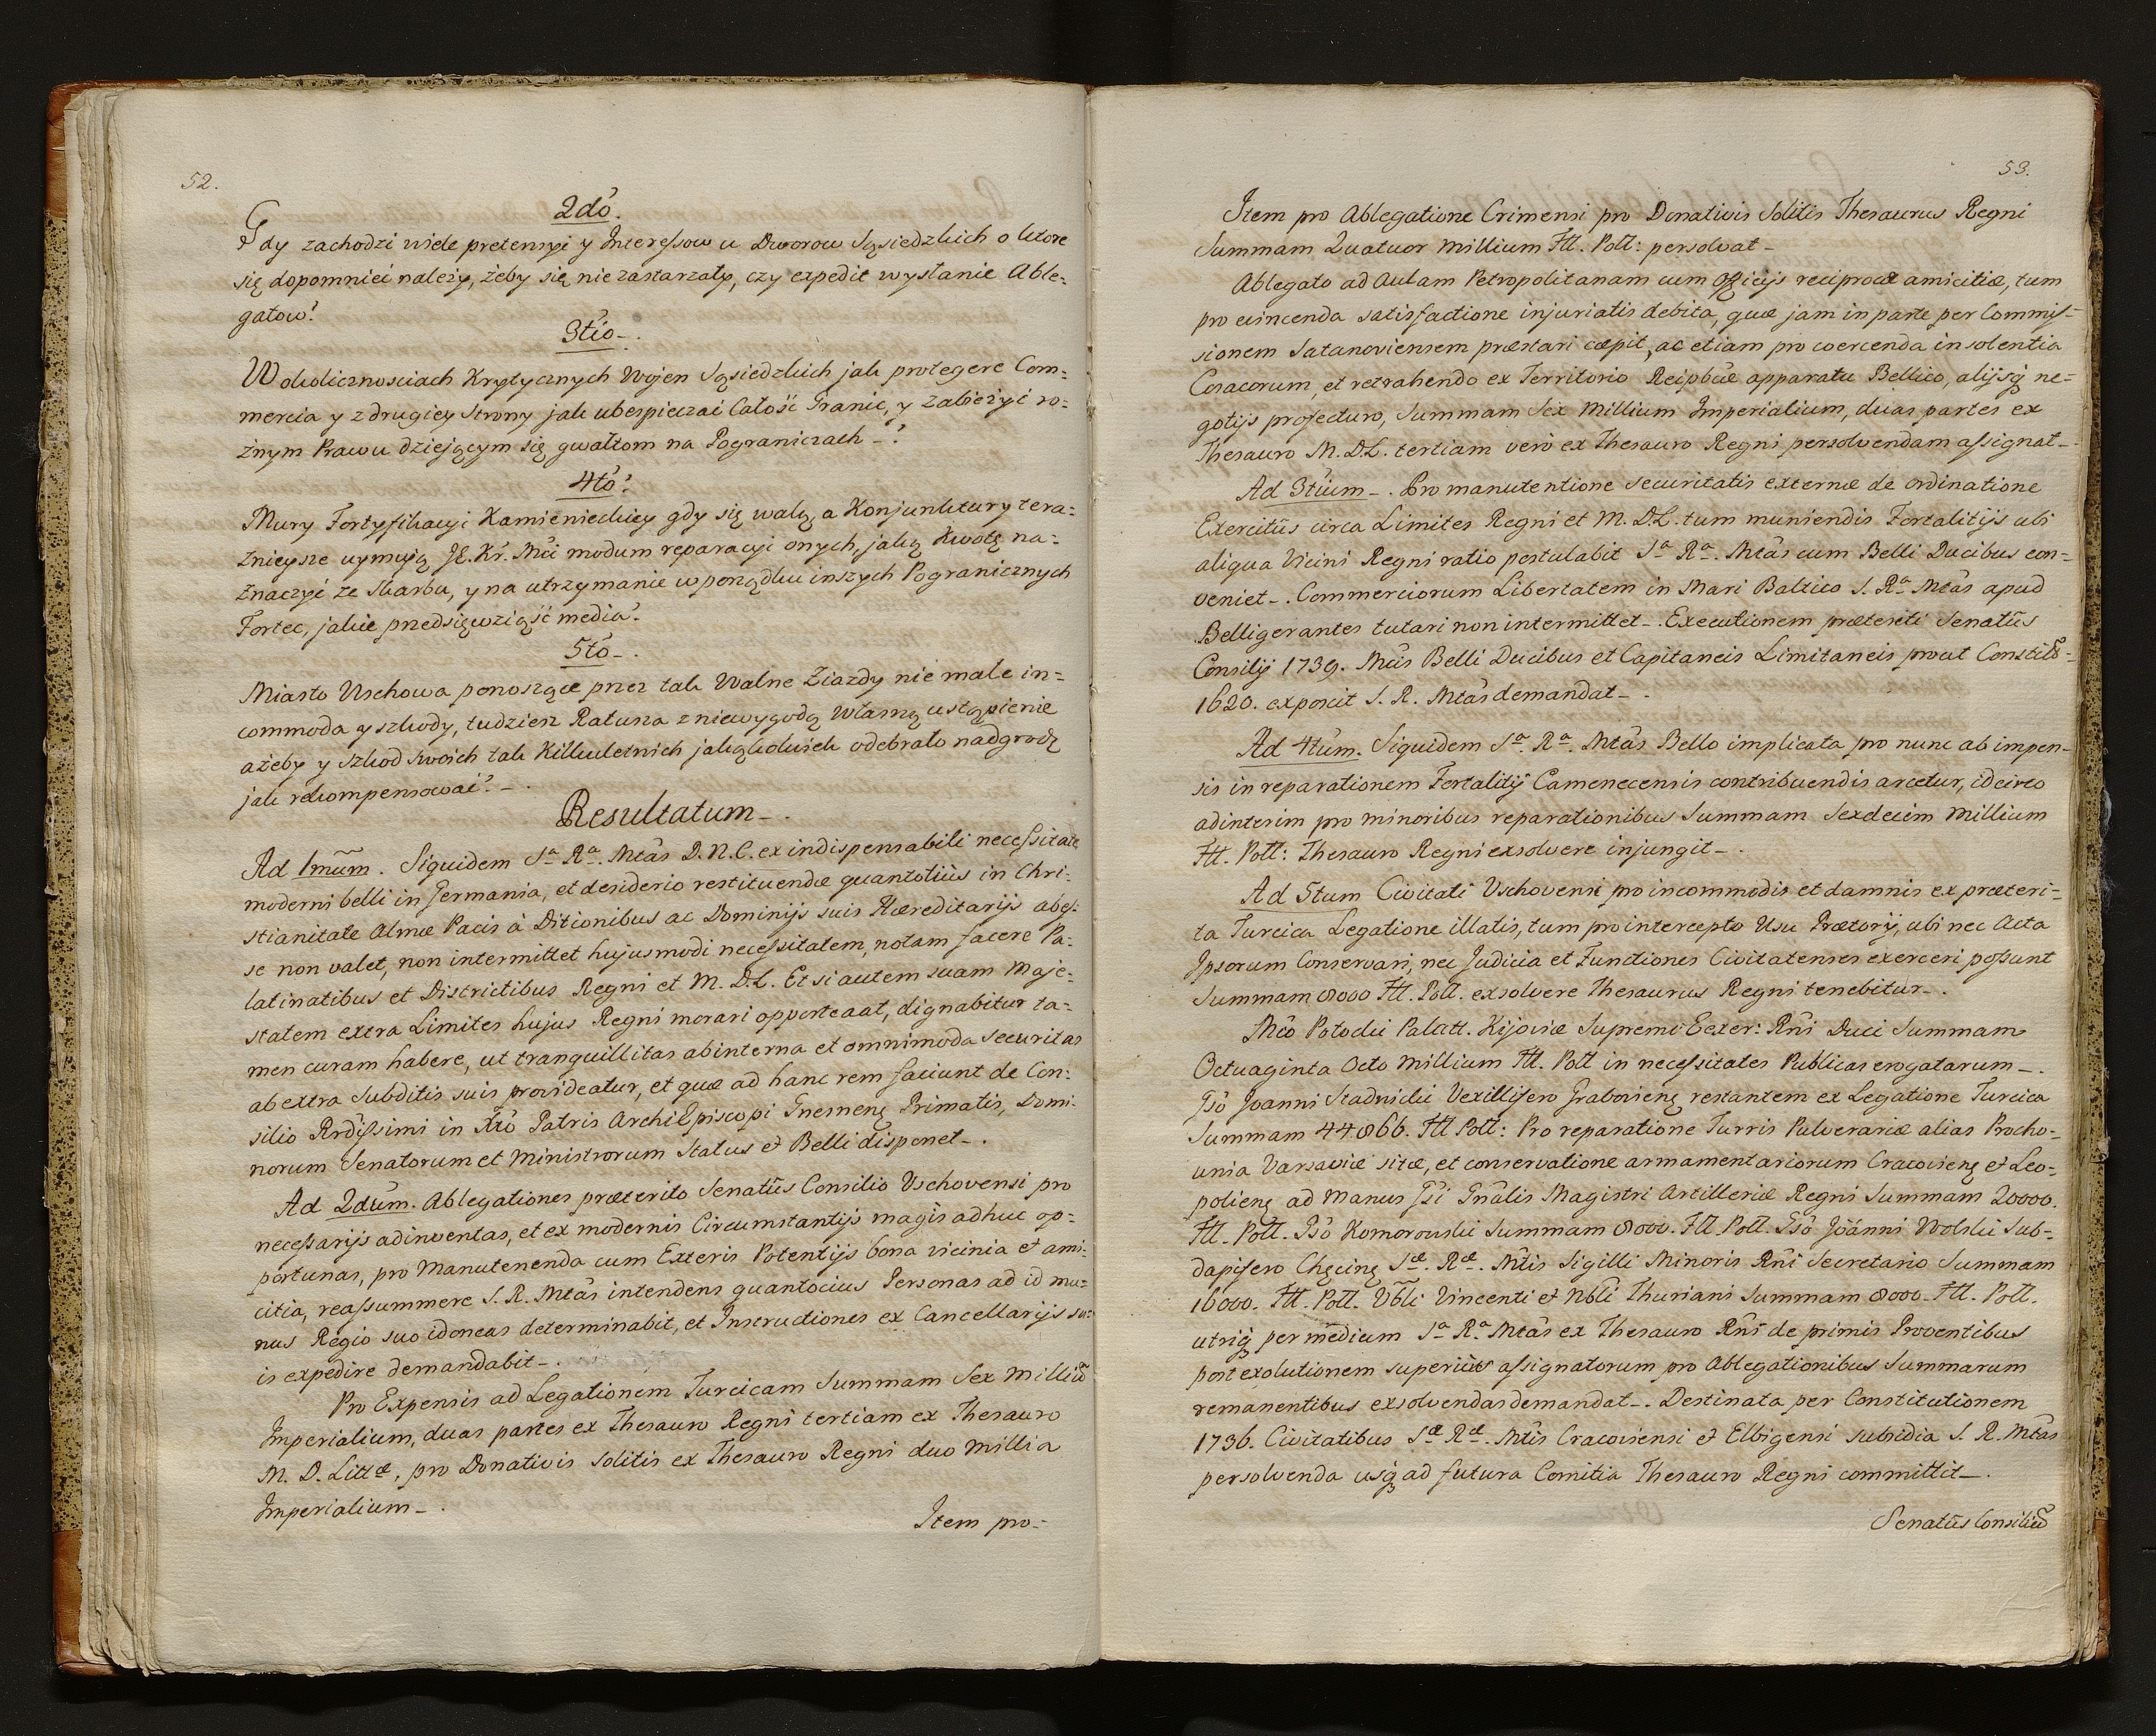 52.
2do.
Gdy zachodzi wiele pretensyi y Interessow u Dworow Sąsiedzkich o ktore
się dopomnieć należy, żeby się nie zastarzały, czy expedit wysłanie Able-
gatow?
3tio.
W okolicznosciach Krytycznych Wojen Sąsiedzkich jak protegere Com-
mercia y z drugiey strony jak ubespieczać Całość Granic, y zabieżyć ro-
żnym Prawu dziejącym się gwałtom na Pograniczach?
4to.
Mury Fortyfikacyi Kamienieckiey gdy się walą, a Konjunktury tera-
znieysze uymują JE. Kr. Mci modum reparacyi onych, jaką kwotę na-
znaczyć ze Skarbu, y na utrzymanie w porządku inszych Pogranicznych
Fortec, jakie przedsięwziąść media?
5to.
Miasto Uschowa ponoszące przez tak Walne Ziazdy nie małe in-
commoda y szkody, tudziesz Ratusza z niewygodą własną ustąpienie
ażeby y szkod swoich tak Kilkuletnich jakążkolwiek odebrało nadgrodę
jak rekompensować?
Resultatum.
Ad 1mum. Siquidem Sa. Ra. Mtas D. N. C. ex indispensabili necessitate
moderni belli in Germania, et desiderio restituendæ quantotius in Chri-
stianitate Almæ Pacis à Ditionibus ac Dominijs suis Hæreditarijs abes-
se non valet, non intermittet hujusmodi necessitatem, notam facere Pa-
latinatibus et Districtibus Regni et M. D. L. Et si autem suam Maje-
statem extra Limites hujus Regni morari opporteaat, dignabitur ta-
men curam habere, ut tranquillitas ab interna et omnimoda securitas
ab extra Subditis suis provideatur, et quæ ad hanc rem faciunt de Con-
silio Rrdissimi in Xto Patris Archi Episcopi Gnesnenę Primatis, Domi-
norum Senatorum et Ministrorum Status et Belli disponet.
Ad 2dum. Ablegationes præterito Senatûs Consilio Vschovensi pro
necessarijs adinventas, et ex modernis Circumstantijs magis adhuc op-
portunas, pro Manutenenda cum Exteris Potentijs bona vicinia et ami-
citia, reassummere S. R. Mtas intendens quantocius Personas ad id mu-
nus Regio suo idoneas determinabit, et Instructiones ex Cancellarijs su-
is expedire demandabit.
Pro Expensis ad Legationem Turcicam Summam Sex Milliũ
Imperialium, duas partes ex Thesauro Regni tertiam ex Thesauro
M. D. Littæ, pro Donativis solitis ex Thesauro Regni duo millia
Imperialium.
Item pro-
53.
Item pro Ablegatione Crimensi pro Donativis Solitis Thesaurus Regni
Summam Quatuor Millium Fll. Poll: persolvat
Ablegato ad Aulam Petropolitanam cum Officijs reciprocæ amicitiæ, tum
pro evincenda satisfactione injuriatis debita, quæ jam in parte per Commis-
sionem Satanoviensem præstari cæpit, ac etiam pro coercenda insolentia
Cosacorum, et retrahendo ex Territorio Reipbcæ apparatu Bellico, alijsq ne-
gotijs profecturo, Summam Sex Millium Imperialium, duas partes ex
Thesauro M. D. L. tertiam verò ex Thesauro Regni persolvendam assignat.
Ad 3tium. Pro manutentione securitatis externæ de ordinatione
Exercitûs circa Limites Regni et M. D. L. tum muniendis Fortalitijs ubi
aliqua Vicini Regni ratio postulabit Sa. Ra. Mtas cum Belli Ducibus con-
veniet. Commerciorum Libertatem in Mari Baltico S. Ra Mtas apud
Belligerantes tutari non intermittet. Executionem præteriti Senatûs
Consilij 1739. Mcis Belli Ducibus et Capitaneis Limitaneis prout Constitõ
1620. exposcit S. R. Mtas demandat.
Ad 4tum. Siquidem Sa. Ra. Mtas Bello implicata pro nunc ab impen-
sis in reparationem Fortalitij Camenecensis contribuendis arcetur, idcirco
adinterim pro minoribus reparationibus Summam Sexdecim Millium
Fll. Poll: Thesauro Regni exsolvere injungit.
Ad 5tum Civitati Uschovensi pro incommodis et damnis ex præteri-
ta Turcica Legatione illatis, tum pro intercepto Usu Prætorij, ubi nec Acta
Ipsorum Conservari, nec Judicia et Functiones Civitatenses exerceri possunt
Summam 8000 Fll. Poll. exsolvere Thesaurus Regni tenebitur.
Mco Potocki Palatt. Kijoviæ Supremo Eexer: Rni Duci Summam
Octuaginta Octo Millium Fll. Poll in necessitates Publicas erogatarum.
Gso Joanni Stadnicki Vexillifero Grabovienę restantem ex Legatione Turcica
Summam 44866. Fll Poll: Pro reparatione Turris Pulverariæ alias Procho-
wnia Varsaviæ sitæ, et conservatione armamentariorum Cracovienę et Leo-
polienę ad Manus Gsi Gnalis Magistri Artilleriæ Regni Summam 20000.
Fll. Poll. Gso Komorowski Summam 8000. Fll Poll. Gso Joanni Wolski Sub-
dapifero Chęcinę Sæ. Ræ. Mtis Sigilli Minoris Rni Secretario Summam
16000. Fll. Poll. Vbli Vincenti et Nbli Thuriani Summam 8000. Fll. Poll.
utriq per medium Sa Ra Mtas ex Thesauro Rni de primis Proventibus
post exolutionem superius assignatorum pro Ablegationibus Summarum
remanentibus exsolvendas demandat. Destinata per Constitutionem
1736. Civitatibus Sæ Ræ. Mtis Cracoviensi et Elbigensi subsidia S. R. Mtas
persolvenda usq ad futura Comitia Thesauro Regni committit.
Senatûs Consiliũ